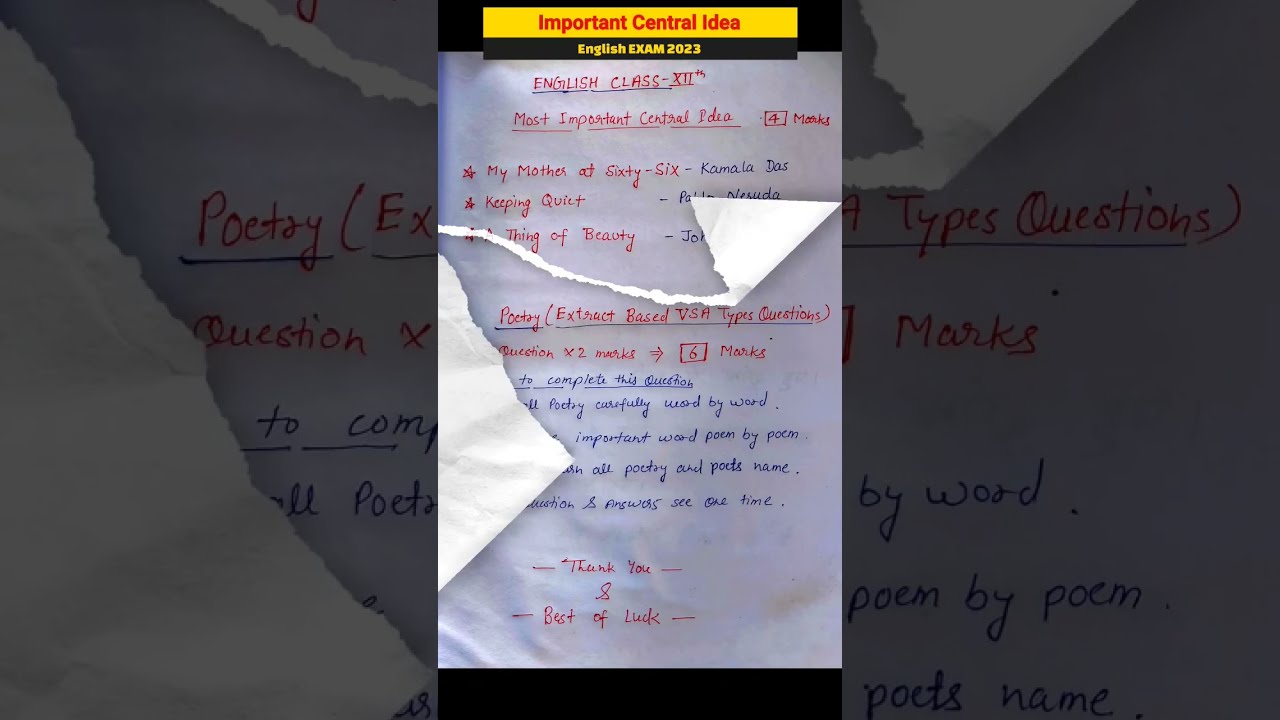 Important Central Idea
English EXAM 2023
ENGLISH CLASS-XIIth
Most Important Central Idea 4 Marks
My Mother at Sixty-Six - Kamala Das
Keeping Quiet - Neruda
Thing of Beauty -
Poetry (Extract Based VSA Types Questions)
Question x 2 marks ⇒ 6 Marks
to complete this Question
Poetry carefully word by word.
important word poem by poem.
all poetry and poets name.
& Answers see one time.
— Thank You —
&
— Best of Luck —
Poetry ( Types Questions)
Question x Marks
to
by word.
poem by poem.
poets name.